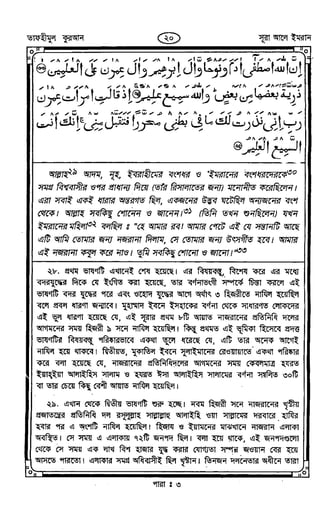 তাফহীমুল কুরআন
২০
সূরা আলে ইমরান
إِنَّ اللهَ اصْطَفَى آدَمَ وَنُوحًا وَّآلَ إِبْرٰهِيْمَ وَآلَ عِمْرٰنَ عَلَى الْعٰلَمِيْنَ
ذُرِّيَّةً بَعْضُهَا مِنْ بَعْضٍ وَاللهُ سَمِيْعٌ عَلِيْمٌ إِذْ قَالَتِ امْرَأَتُ عِمْرٰنَ
رَبِّ إِنِّيْ نَذَرْتُ لَكَ مَا فِيْ بَطْنِيْ مُحَرَّرًا فَتَقَبَّلْ مِنِّيْ إِنَّكَ أَنْتَ
السَّمِيْعُ الْعَلِيْمُ
আল্লাহ২৯ আদম, নূহ, ইবরাহীমের বংশধর ও ইমরানের বংশধরদেরকে৩০
সমগ্র বিশ্ববাসীর ওপর প্রাধান্য দিয়ে (তাঁর রিসালাতের জন্য) মনোনীত করেছিলেন।
এরা সবাই একই ধারার অন্তরগত ছিল, একজনের উদ্ভব ঘটেছিল অন্যজনের বংশ
থেকে। আল্লাহ সবকিছু শোনেন ও জানেন।৩১ (তিনি তখন শুনছিলেন) যখন
ইমরানের মহিলা৩২ বলছিল : "হে আমার রব! আমার পেটে এই যে সন্তানটি আছে
এটি আমি তোমার জন্য নজরানা দিলাম, সে তোমার জন্য উৎসর্গীত হবে। আমার
এই নজরানা কবুল করে নাও। তুমি সবকিছু শোনো ও জানো।"৩৩
২৮. প্রথম ভাষণটি এখানেই শেষ হয়েছে। এর বিষয়বস্তু, বিশেষ করে এর মধ্যে
বদরযুদ্ধের দিকে যে ইংগিত করা হয়েছে, তার বর্ণনাভংগী সম্পর্কে চিন্তা করলে এই
ভাষণটি বদর যুদ্ধের পরে এবং ওহোদ যুদ্ধের আগে অর্থাৎ ৩ হিজরীতে নাযিল হয়েছিল
বলে প্রবল ধারণা জন্মাবে। মুহাম্মাদ ইবনে ইসহাকের বর্ণনা থেকে সাধারণত লোকদের
এই ভুল ধারণা হয়েছে যে, এই সূরার প্রথম ৮০টি আয়াত নাজরানের প্রতিনিধি দলের
আগমনের সময় হিজরী ৯ সনে নাযিল হয়েছিল। কিন্তু প্রথমত এই ভূমিকা হিসেবে প্রদত্ত
ভাষণটির বিষয়বস্তু পরিষ্কারভাবে একথা তুলে ধরেছে যে, এটি তার অনেক আগেই
নাযিল হয়ে থাকবে। দ্বিতীয়ত, মুকাতিল ইবনে সুলাইমানের রেওয়ায়াতে একথা পরিষ্কার
করে বলা হয়েছে যে, নাজরানের প্রতিনিধিদলের আগমনের সময় কেবলমাত্র হযরত
ইয়াহ্ইয়া আলাইহিস সালাম ও হযরত ঈসা আলাইহিস সালামের বর্ণনা সম্বলিত ৩০টি
বা তার চেয়ে কিছু বেশী আয়াত নাযিল হয়েছিল।
২৯. এখান থেকে দ্বিতীয় ভাষণটি শুরু হচ্ছে। নবম হিজরী সনে নাজরানের খৃস্টীয়
প্রজাতন্ত্রের প্রতিনিধি দল রসূলুল্লাহ সাল্লাল্লাহু আলাইহি ওয়া সাল্লামের দরবারে হাযির
হবার পর এ অংশটি নাযিল হয়েছিল। হিজায ও ইয়ামনের মাঝখানে নাজরান এলাকা
অবস্থিত। সে সময় এ এলাকায় ৭২টি জনপদ ছিল। বলা হয়ে থাকে, এই জনপদগুলো
থেকে সে সময় এক লাখ বিশ হাজার যুদ্ধ করার যোগ্যতা সম্পন্ন জওয়ান বের হয়ে
আসতে পারতো। এলাকার সমগ্র অধিবাসীই ছিল খৃস্টান। তিনজন দলনেতার অধীনে তারা
পারা : ৩